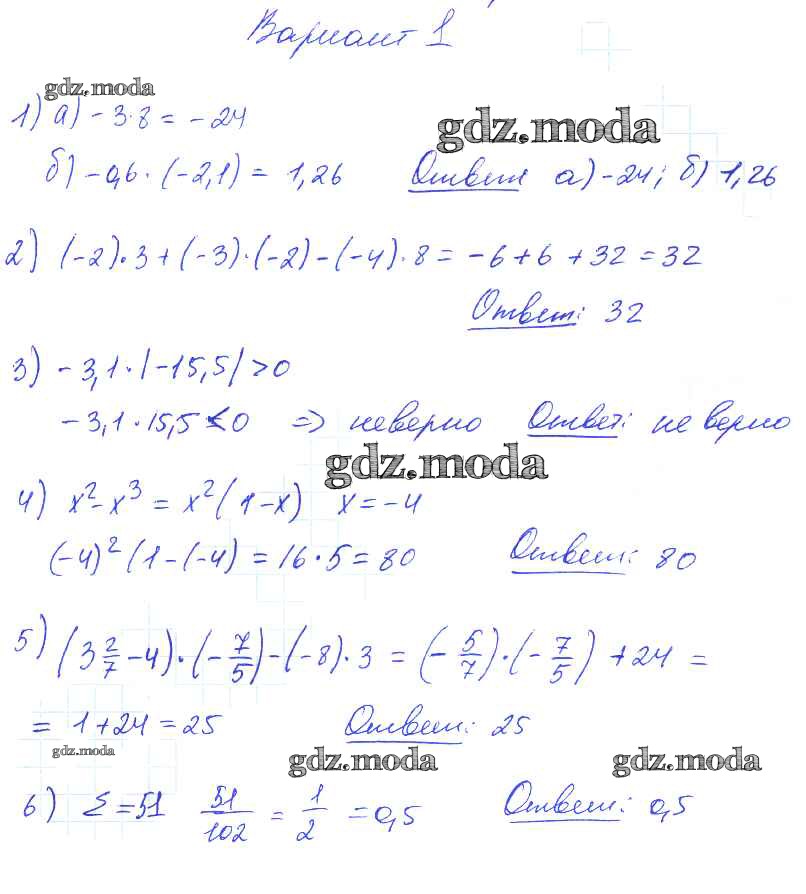 Вариант 1
gdz.moda
1) а) -3·8 = -24
gdz.moda
б) -0,6·(-2,1) = 1,26 Ответ а) -24; б) 1,26
2) (-2)·3+(-3)·(-2)-(-4)·8 = -6+6+32 = 32
Ответ: 32
3) -3,1·|-15,5|>0
-3,1·15,5<0 => неверно Ответ: не верно
gdz.moda
4) x²-x³ = x²(1-x) x=-4
(-4)²(1-(-4) = 16·5 = 80 Ответ: 80
5) (3 2/7 -4)·(-7/5)-(-8)·3 = (-5/7)·(-7/5) +24 =
= 1+24 = 25 Ответ: 25
gdz.moda gdz.moda gdz.moda
6) Σ=51 51/102 = 1/2 = 0,5 Ответ: 0,5